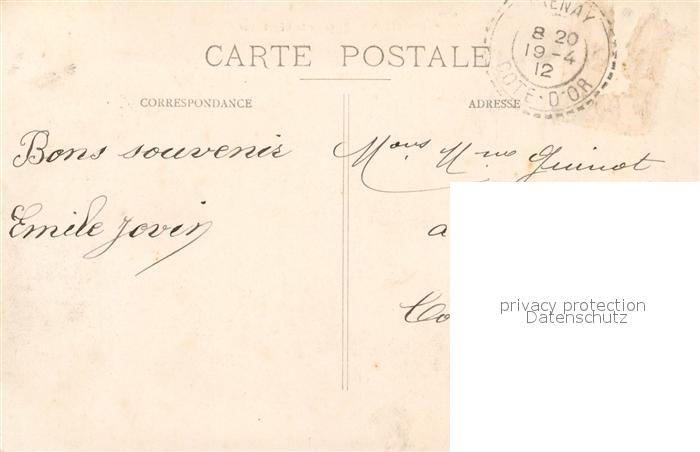 CARTE POSTALE
ENAY
8 20
19-4
12
COTE-D'OR
CORRESPONDANCE
ADRESSE
Bons souvenir
Emile Jovin
Mons Mme Guinot
a
Co
privacy protection
Datenschutz